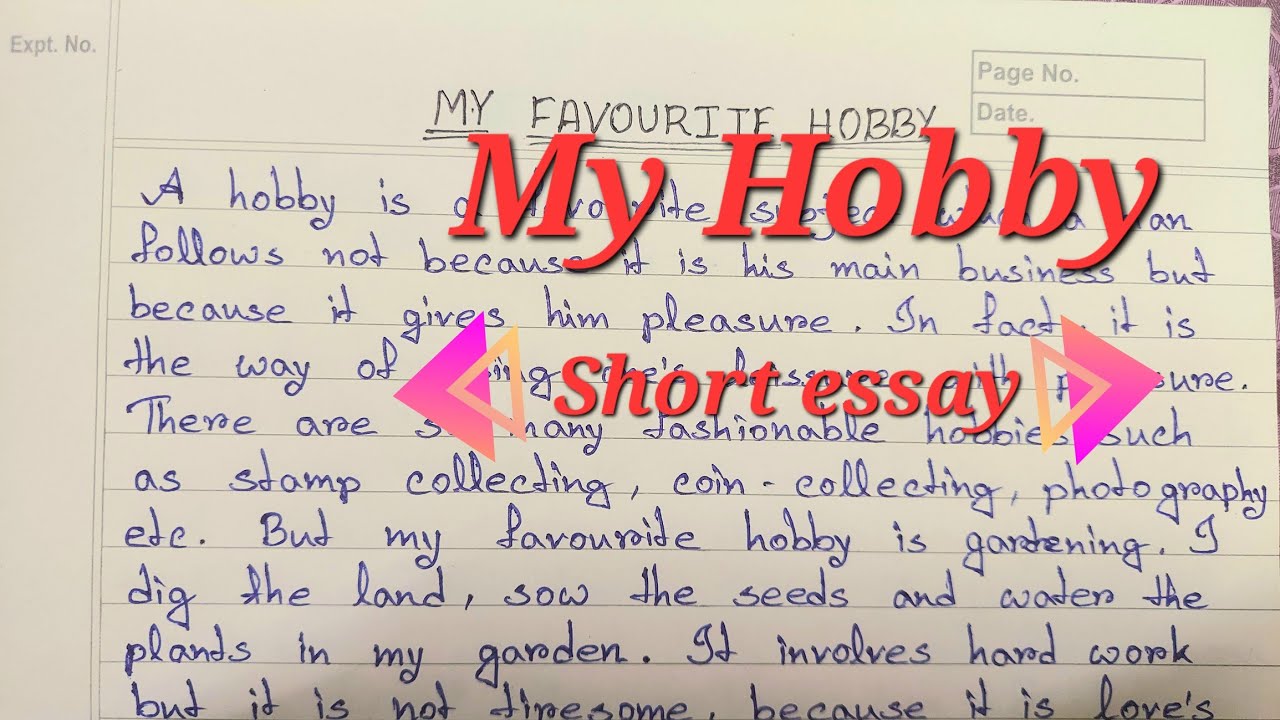 Expt. No.
Page No.
Date.
MY FAVOURITE HOBBY
My Hobby
A hobby is a favourite subject which a man
follows not because it is his main business but
because it gives him pleasure. In fact, it is
the way of one's with pleasure.
Short essay
There are so many fashionable hobbies such
as stamp collecting, coin-collecting, photography
etc. But my favourite hobby is gardening. I
dig the land, sow the seeds and water the
plants in my garden. It involves hard work
but it is not tiresome, because it is love's